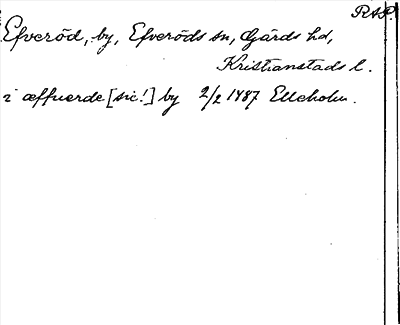 RAP.
Efveröd, by, Efveröds sn, Gärds hd,
Kristianstads l.
i æffuerde [sic!] by 2/2 1487 Elleholm.